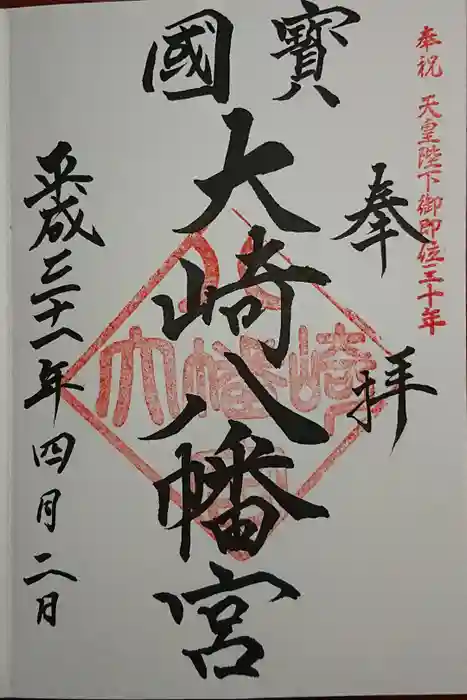 奉祝 天皇陛下御即位三十年
奉拝
國寳
大崎八幡宮
平成三十一年四月二日